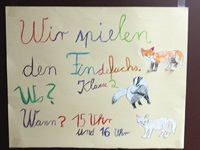 Wir spielen
den Findefuchs.
Wo? Klasse 2
Wann? 15 Uhr
und 16 Uhr